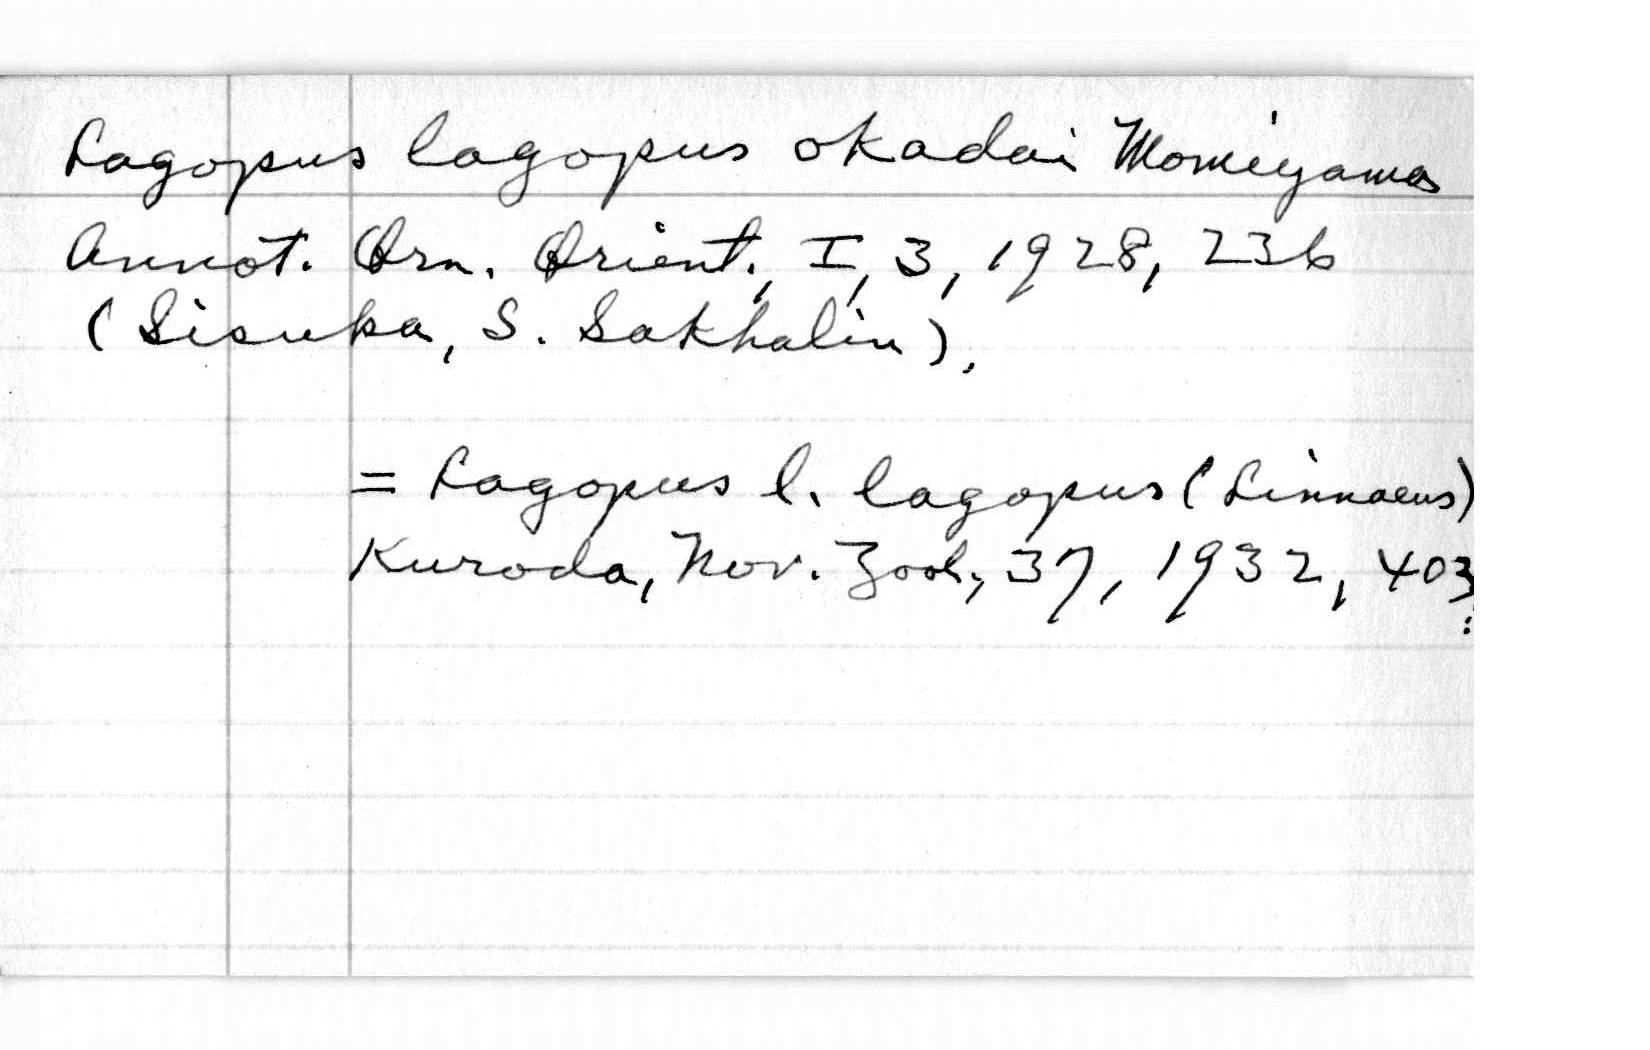 Lagopus lagopus okadai Momiyama
Annot. Orn. Orient., I, 3, 1928, 236
(Sisuka, S. Sakhalin).
= Lagopus l. lagopus (Linnaeus)
Kuroda, Nov. Zool., 37, 1932, 403